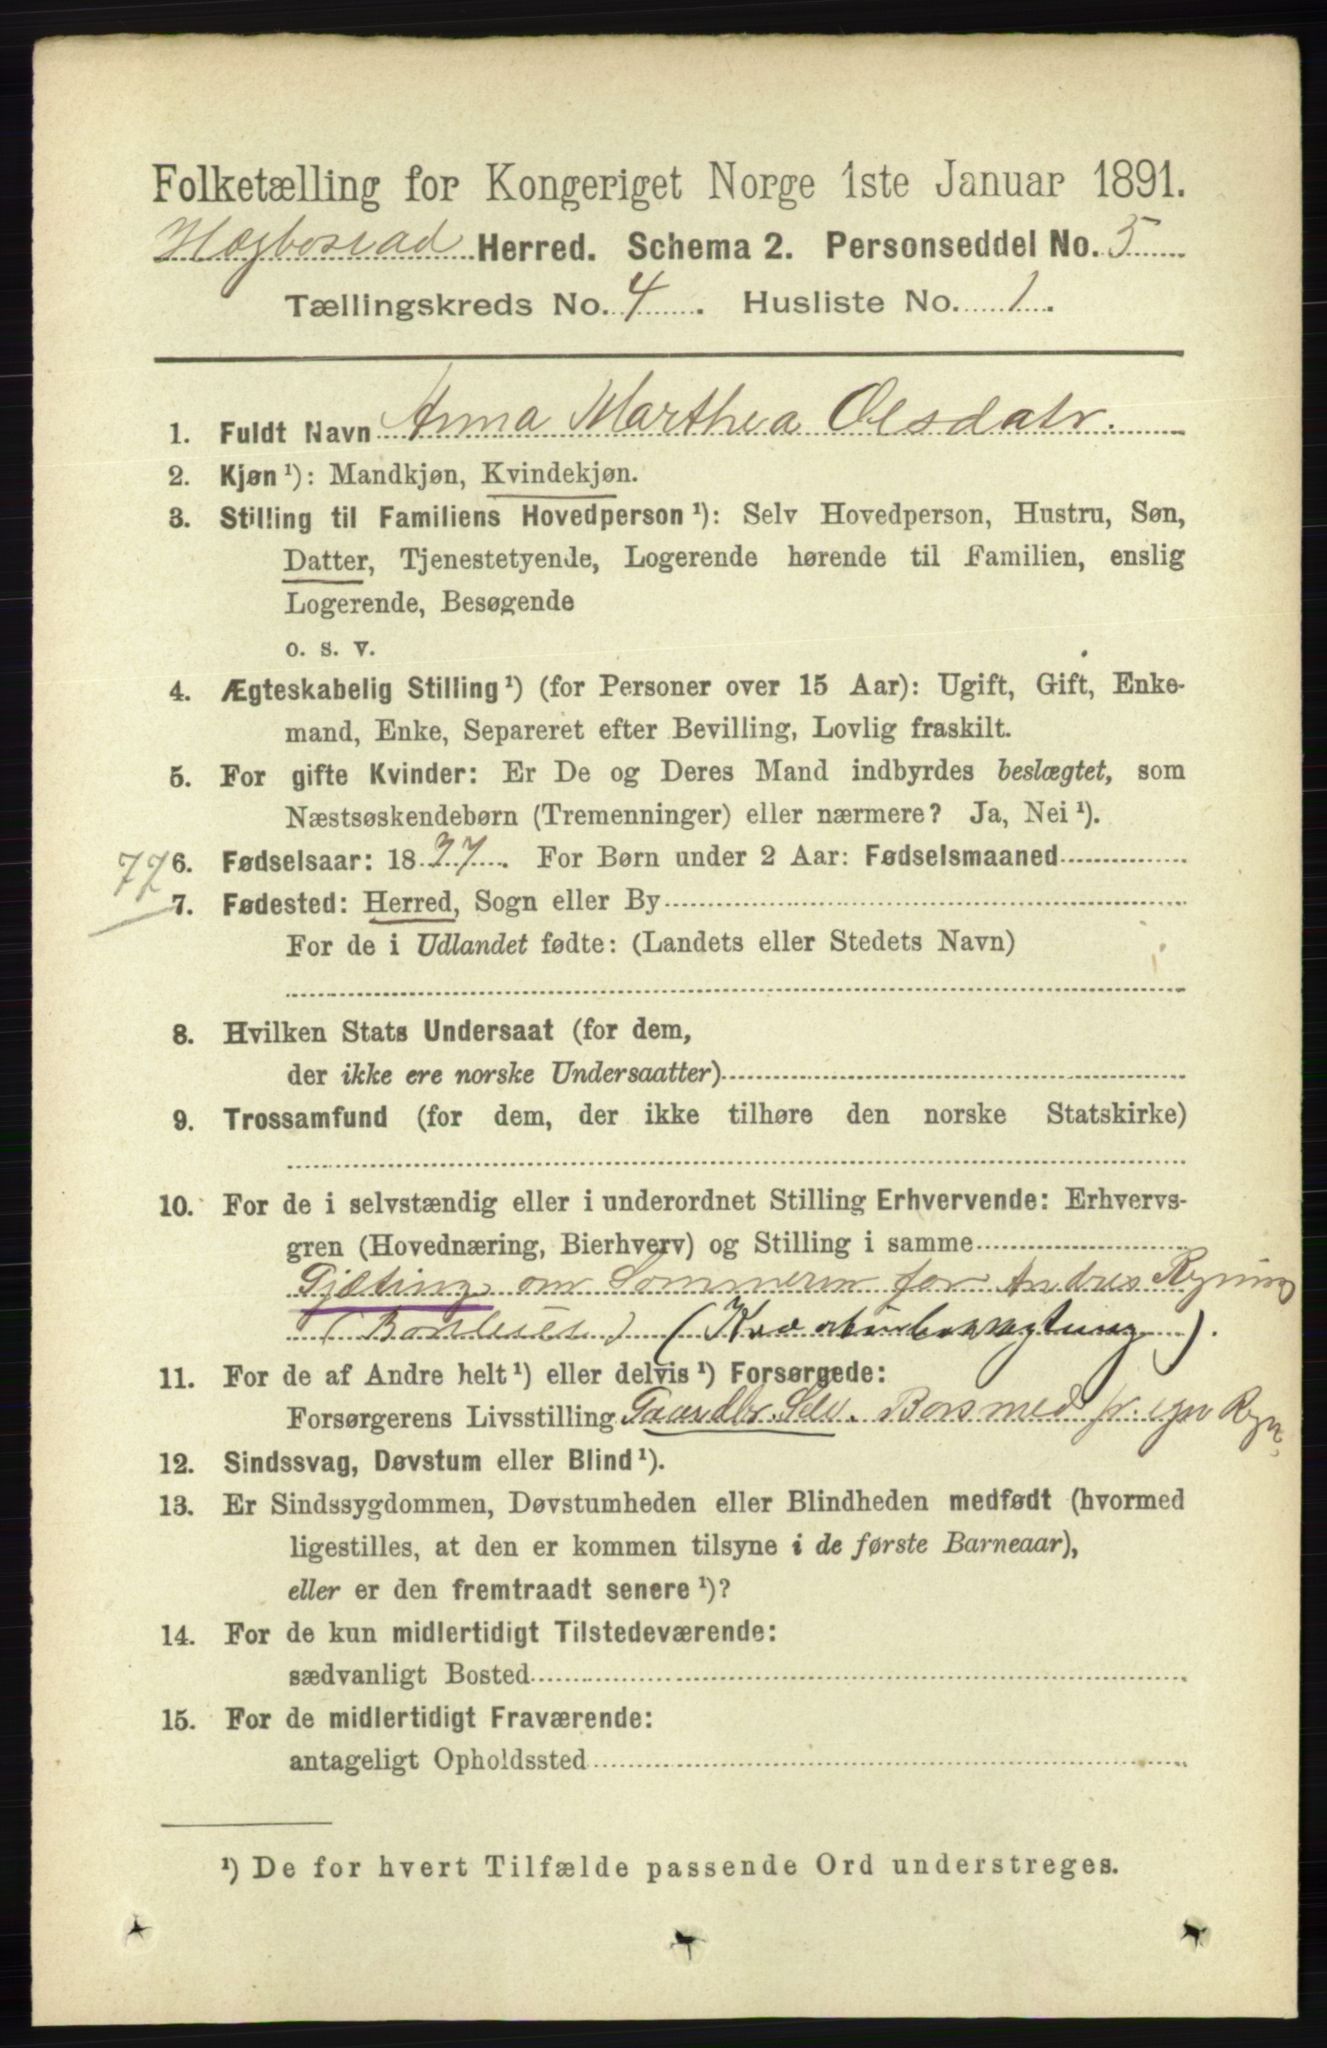 Folketælling for Kongeriget Norge 1ste Januar 1891.
Hægbostad Herred. Schema 2. Personseddel No. 5
Tællingskreds No. 4. Husliste No. 1.
1. Fuldt Navn Anna Marthea Olsdatr.
2. Kjøn ¹): Mandkjøn, Kvindekjøn.
3. Stilling til Familiens Hovedperson ¹): Selv Hovedperson, Hustru, Søn,
Datter, Tjenestetyende, Logerende hørende til Familien, enslig
Logerende, Besøgende
o. s. v.
4. Ægteskabelig Stilling ¹) (for Personer over 15 Aar): Ugift, Gift, Enke-
mand, Enke, Separeret efter Bevilling, Lovlig fraskilt.
5. For gifte Kvinder: Er De og Deres Mand indbyrdes beslægtet, som
Næstsøskendebørn (Tremenninger) eller nærmere? Ja, Nei ¹).
77
6. Fødselsaar: 1877. For Børn under 2 Aar: Fødselsmaaned
7. Fødested: Herred, Sogn eller By
For de i Udlandet fødte: (Landets eller Stedets Navn)
8. Hvilken Stats Undersaat (for dem,
der ikke ere norske Undersaatter)
9. Trossamfund (for dem, der ikke tilhøre den norske Statskirke)
10. For de i selvstændig eller i underordnet Stilling Erhvervende: Erhvervs-
gren (Hovednæring, Bierhverv) og Stilling i samme
Gjæting om Sommeren for Andres Regning
11. For de af Andre helt ¹) eller delvis ¹) Forsørgede:
Forsørgerens Livsstilling Gaardbr. Selv.
12. Sindssvag, Døvstum eller Blind ¹).
13. Er Sindssygdommen, Døvstumheden eller Blindheden medfødt (hvormed
ligestilles, at den er kommen tilsyne i de første Barneaar),
eller er den fremtraadt senere ¹)?
14. For de kun midlertidigt Tilstedeværende:
sædvanligt Bosted
15. For de midlertidigt Fraværende:
antageligt Opholdssted
¹) De for hvert Tilfælde passende Ord understreges.